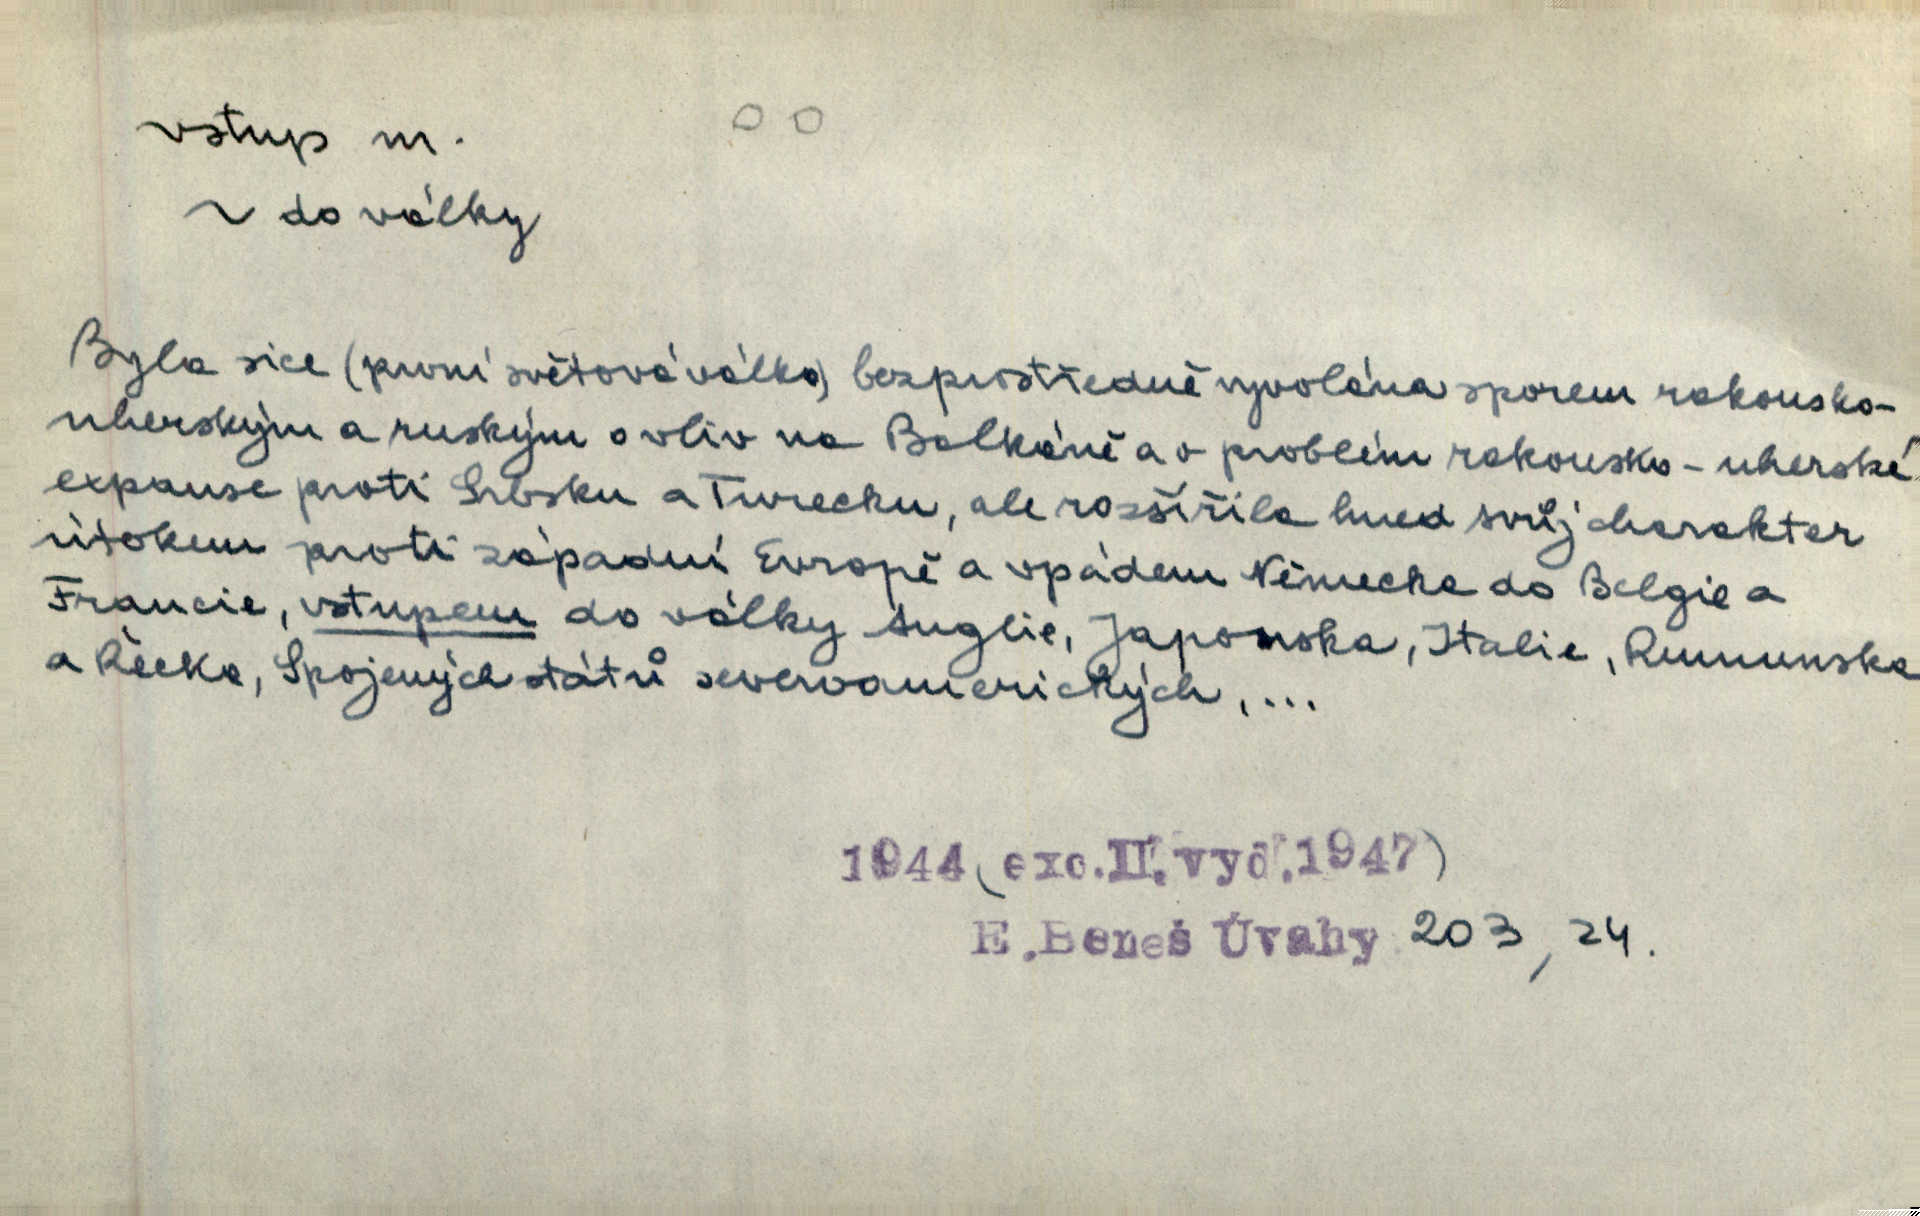 vstup m.
~ do války
Byla sice (první světová válka) bezprostředně vyvolána sporem rakousko-
uherským a ruským o vliv na Balkáně a o problém rakousko-uherské
expanse proti Srbsku a Turecku, ale rozšířila hned svůj charakter
útokem proti západní Evropě a vpádem Německa do Belgie a
Francie, vstupem do války Anglie, Japonska, Italie, Rumunska
a Řecka, Spojených států severoamerických, ...
1944 (exc. II. vyd. 1947)
E. Beneš Úvahy 203, 24.